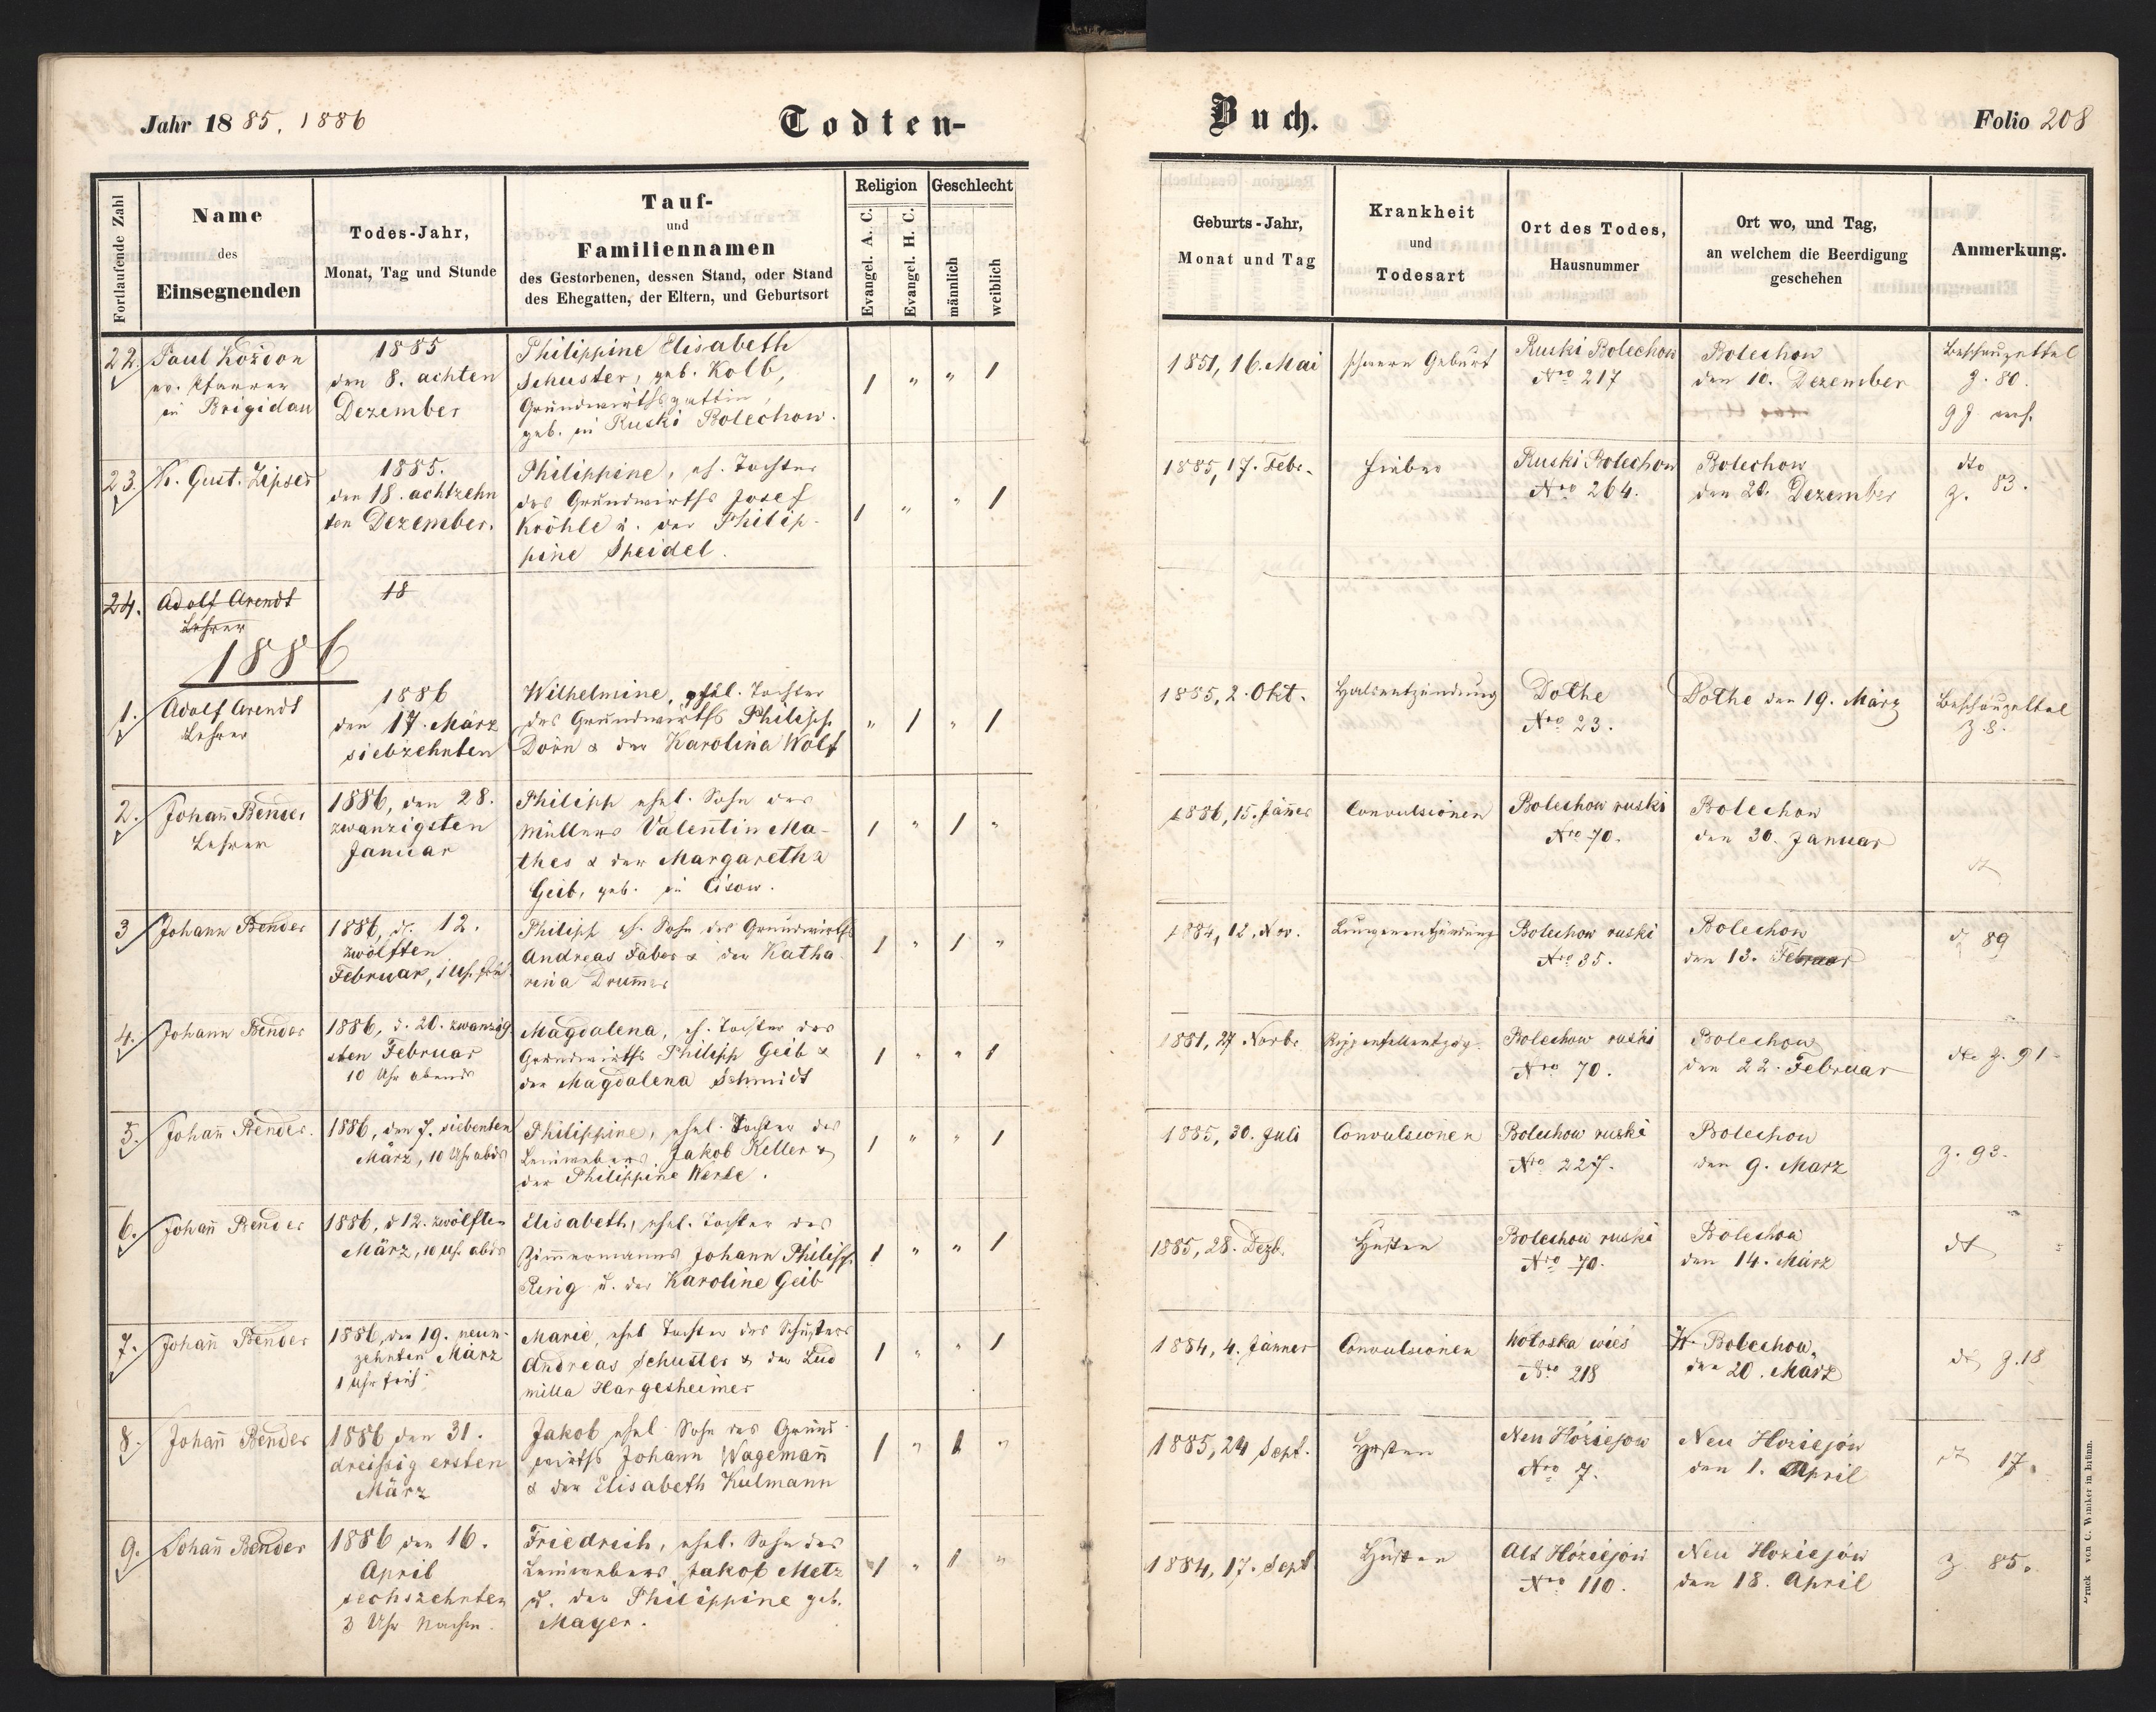 Jahr 1885, 1886
Todten-
Buch.
Folio 208
Fortlaufende Zahl
Name
des
Einsegnenden
Todes-Jahr,
Monat, Tag und Stunde
Tauf-
und
Familiennamen
des Gestorbenen, dessen Stand, oder Stand
des Ehegatten, der Eltern, und Geburtsort
Religion
Evangel. A. C.
Evangel. H. C.
Geschlecht
männlich
weiblich
Geburts-Jahr,
Monat und Tag
Krankheit
und
Todesart
Ort des Todes,
Hausnummer
Ort wo, und Tag,
an welchem die Beerdigung
geschehen
Anmerkung.
22.
Paul Kozdon
ev. Pfarrer
in Brigidau
1885
den 8. achten
Dezember
Philippine Elisabeth
Schuster, geb. Kolb,
Grundwirthsgattin,
geb. in Ruski Bolechow.
1 " " 1
1851, 16. Mai
schwere Geburt
Ruski Bolechow
Nro 217
Bolechow
den 10. Dezember
Beschauzettel
Z. 80.
23.
Kr. Gust. Zipser
1885.
den 18. achtzehn
ten Dezember.
Philippine, eh. Tochter
des Grundwirths Josef
Kröhle u. der Philip-
pine Speidel.
1 " " 1
1885, 17. Febr.
Fieber
Ruski Bolechow
Nro 264.
Bolechow
den 20. Dezember
dto
Z. 83.
24.
Adolf Arendt
Lehrer
18
1886
1.
Adolf Arendt
Lehrer
1886
den 17. März
siebzehnten
Wilhelmine, ehel. Tochter
des Grundwirths Philipp
Dorn & der Karolina Wolf
" 1 " 1
1885, 2. Okt.
Halsentzündung
Dothe
Nro 23.
Dothe den 19. März
Beschauzettel
Z. 8.
2.
Johan̄ Bender
Lehrer
1886, den 28.
zwanzigsten
Januar
Philipp ehel. Sohn des
Müllers Valentin Ma-
thes & der Margaretha
Geib, geb. in Cisow.
1 " 1 "
1886, 15. Jän̄er
Convulsionen
Bolechow ruski
Nro 70.
Bolechow
den 30. Januar
dt
3
Johann Bender
1886, d. 12.
zwölften
Februar, 1 Uh. früh
Philipp eh. Sohn des Grundwirths
Andreas Faber & der Katha-
rina Drum̄er
1 " 1 "
1884, 12. Nov.
Lungenentzündung
Bolechow ruski
Nro 35.
Bolechow
den 13. Februar
Z 89
4.
Johann Bender
1886, d. 20. zwanzig
sten Februar
10 Uhr abends
Magdalena, eh. Tochter des
Grundwirths Philipp Geib &
der Magdalena Schmidt
1 " " 1
1881, 27 Novbr
Bolechow ruski
Nro 70.
Bolechow
den 22. Februar
dto Z. 91
5.
Johan̄ Bender.
1886, den 7. siebenten
März, 10 Uhr abds
Philippine, ehel. Tochter des
Leinwebers Jakob Keller &
der Philippine Werle.
1 " " 1
1885, 30. Juli
Convulsionen
Bolechow ruski
Nro 227.
Bolechow
den 9. März
Z. 93.
6.
Johan̄ Bender
1886, d 12. zwölften
März, 10 Uh. abds
Elisabeth, ehel. Tochter des
Zim̄ermanns Johann Philipp
Rerig u. der Karoline Geib
1 " " 1
1885, 28. Dezb.
Husten
Bolechow ruski
Nro 70.
Bolechow
den 14. März
dt
7.
Johan̄ Bender
1886, den 19. neun-
zehnten März
1 Uhr früh.
Marie, ehel Tochter des Schusters
Andreas Schuster & der Lud
milla Hargesheimer
1 " " 1
1884, 4. Jänner
Convulsionen
Wołoska wieś
Nro 218
Bolechow,
den 20. März
dt Z. 18
8.
Johan̄ Bender
1886 den 31.
dreißig ersten
März
Jakob ehel. Sohn des Grund-
wirths Johann Wageman̄
& der Elisabeth Kulmann
1 " 1 "
1885, 24 Sept.
Husten
Neu Hoziejow
Nro 7.
Neu Hoziejów
den 1. April
dt 17.
9.
Johan̄ Bender
1886 den 16.
April
sechszehnten
3 Uhr Nachm.
Friedrich, ehel. Sohn des
Leinwebers Jakob Metz
u. der Philippine geb.
Mayer.
1 " 1 "
1884, 17. Sept
Husten
Alt Hoziejów
Nro 110.
Neu Hoziejów
den 18. April
Z 85.
Druck von C. Winiker in Brünn.